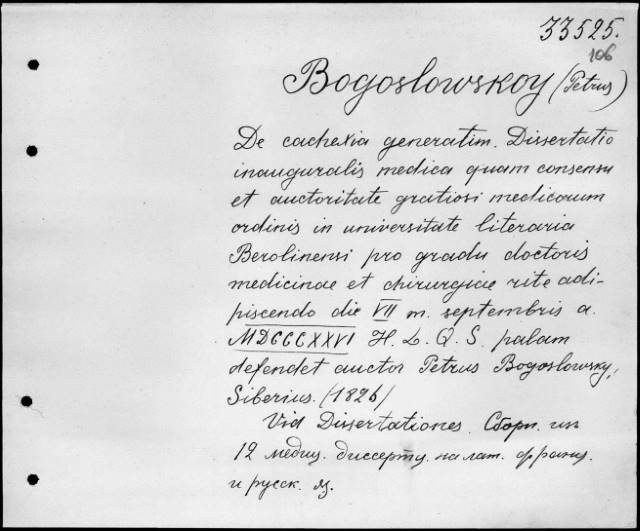 33525.
106
Bogoslowskoy (Petrus)
De cachexia generatim. Dissertatio
inauguralis medica quam consensu
et auctoritate gratiosi medicorum
ordinis in universitate literaria
Berolinensi pro gradu doctoris
medicinae et chirurgiae rite adi-
piscendo die VII m. septembris a.
MDCCCXXVI H. L. Q. S. palam
defendet auctor Petrus Bogoslowsky,
Siberius. (1826)
Vid Dissertationes. Сборн. из
12 медиц. диссерт. на лат. франц.
и русск. яз.